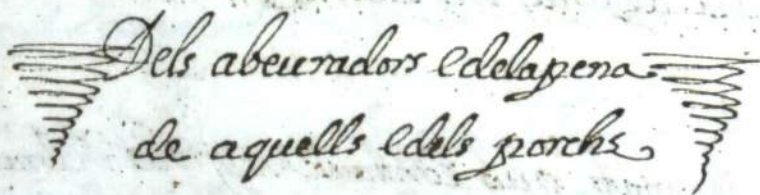 Dels abeuradors e dela pena
de aquells e dels porchs